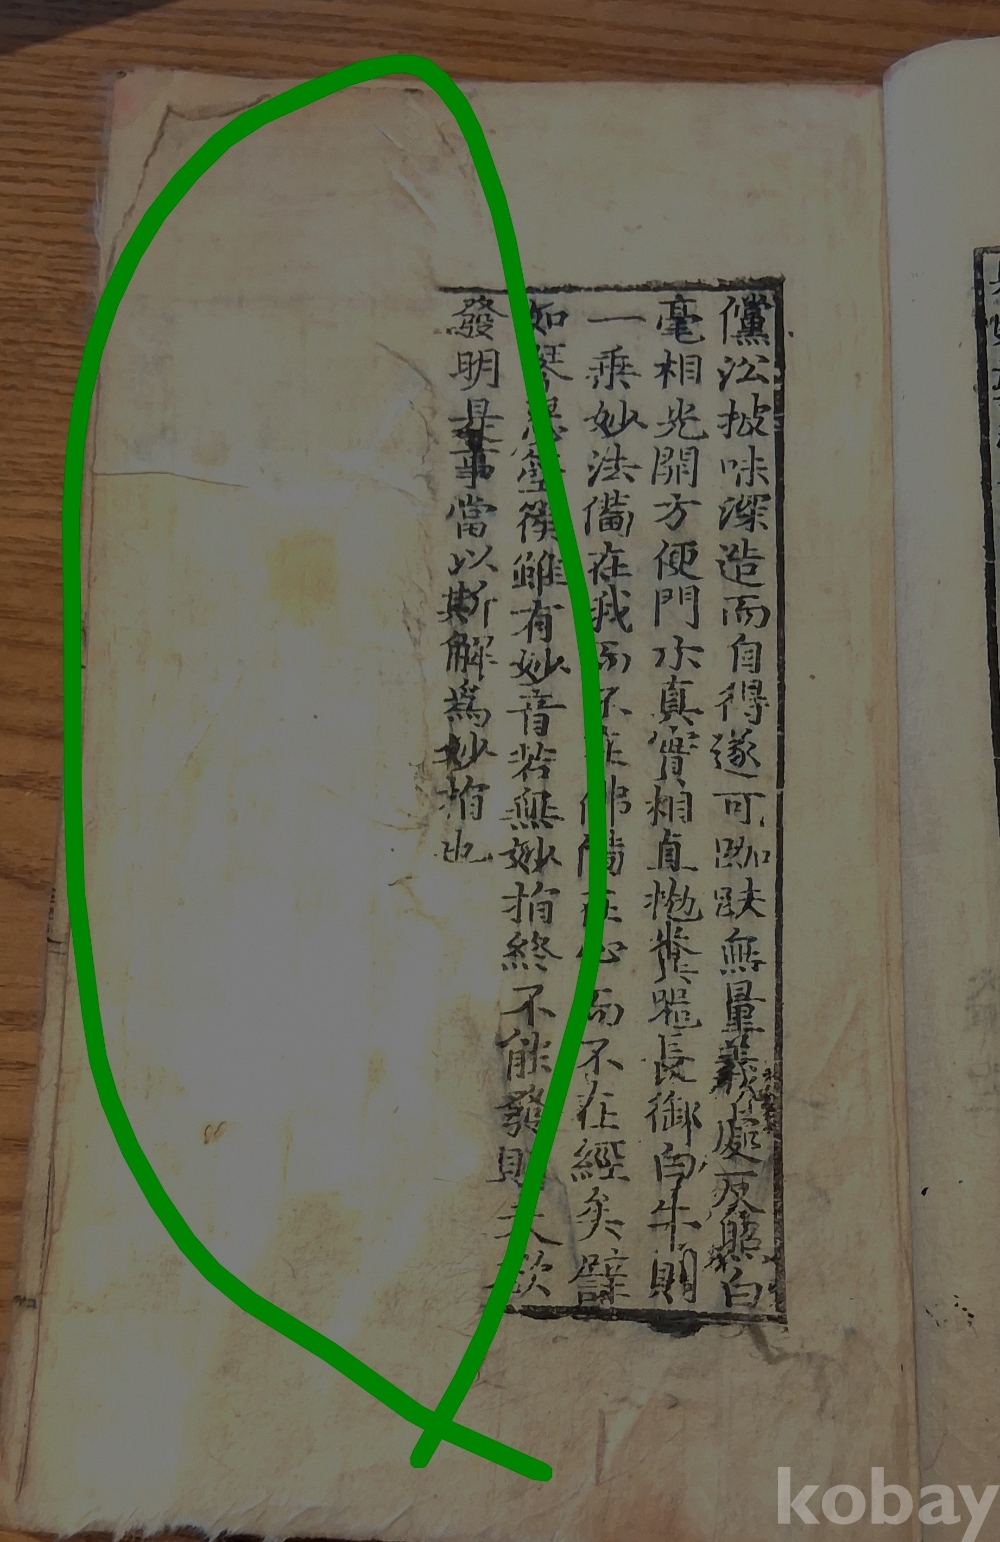 儻沿披味深造而自得遂可跏趺無量義處反照白
毫相光開方便門示真實相直抛糞䠫長御白牛則
一乘妙法備在我而不在佛備在心而不在經矣譬
如琴瑟箜篌雖有妙音若無妙指終不能發則夫欲
發明是事當以斯解爲妙指也
kobay